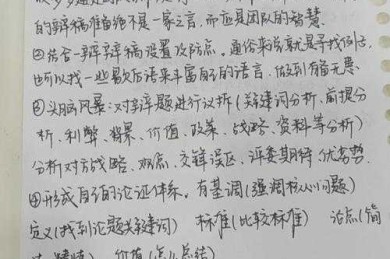 的辩稿准备绝不是一家之言,而应是团队的智慧.
②结合一辩辩稿设置攻防点。通俗来说就是寻找例子,
也可以找一些歇后语来丰富自己的语言,做到有备无患.
③头脑风暴:对辩题进行议拆(关键词分析、前提分
析、利弊、背景、价值、政策、战略、资料等分析)
分析对方战略、观点、交锋误区、评委期待、优劣势.
④形成自己的论证体系。有基调(强调核心问题)
定义(找到论题关键词) 标准(比较标准) 论点(简
价值(总结)